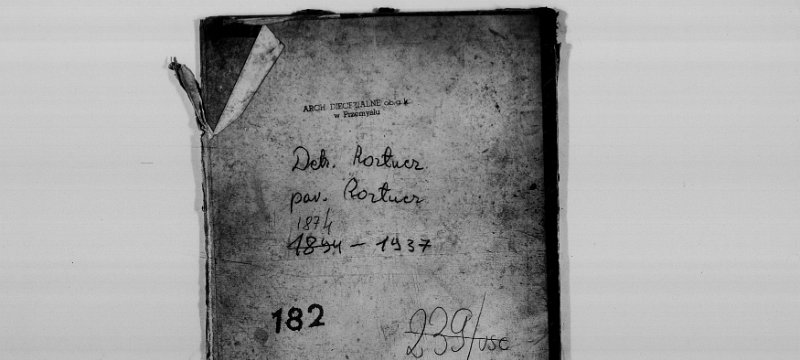 ARCH DIECEZJALNE ob. gr. k
w Przemyślu
Dek. Roztucz
par. Roztucz
1874
1894 – 1937
182
239/usc